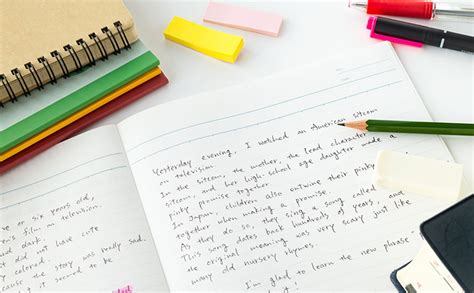 or six years old,
film on television
dark.
it did not have cute
colored.
because the story was really sad.
it seemed to be
Yesterday evening, I watched an American sitcom
on television.
In the sitcom, the mother, the lead character
and her high-school age daughter made a
pinky promise together
In Japan, children also entwine their pinky
together when making a promise.
As they do so, they sing a song called
This song dates back hundreds of years, and
the original meaning was very scary just like
many old nursery rhymes.
I'm glad to learn the new phrase